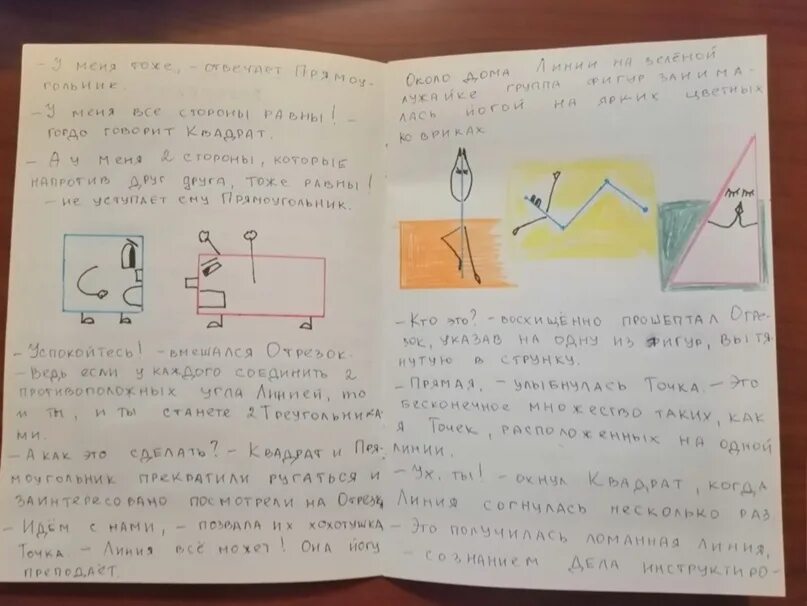 - У меня тоже, - отвечает Прямоу-
гольник.
- У меня все стороны равны! -
гордо говорит Квадрат.
- А у меня 2 стороны, которые
напротив друг друга, тоже равны!
- не уступает ему Прямоугольник.
- Успокойтесь! - вмешался Отрезок.
- Ведь если у каждого соединить 2
противоположных угла Линией, то
и ты, и ты станете 2 Треугольника
ми.
- А как это сделать? - Квадрат и Пря
моугольник прекратили ругаться и
заинтересовано посмотрели на Отрезк
- Идём с нами, - позвала их хохотушка
Точка. - Линия всё может! Она йогу
преподаёт.
Около дома Линии на зелёной
лужайке группа фигур занима-
лась йогой на ярких цветных
ковриках.
- Кто это? - восхищённо прошептал Отре-
зок, указав на одну из фигур, вытя
нутую в струнку.
- Прямая, - улыбнулась Точка. - Это
бесконечное множество таких, как
я Точек, расположенных на одной
линии.
- Ух, ты! - охнул Квадрат, когда
Линия согнулась несколько раз
- Это получилась ломанная линия,
- сознанием дела инструктиро-